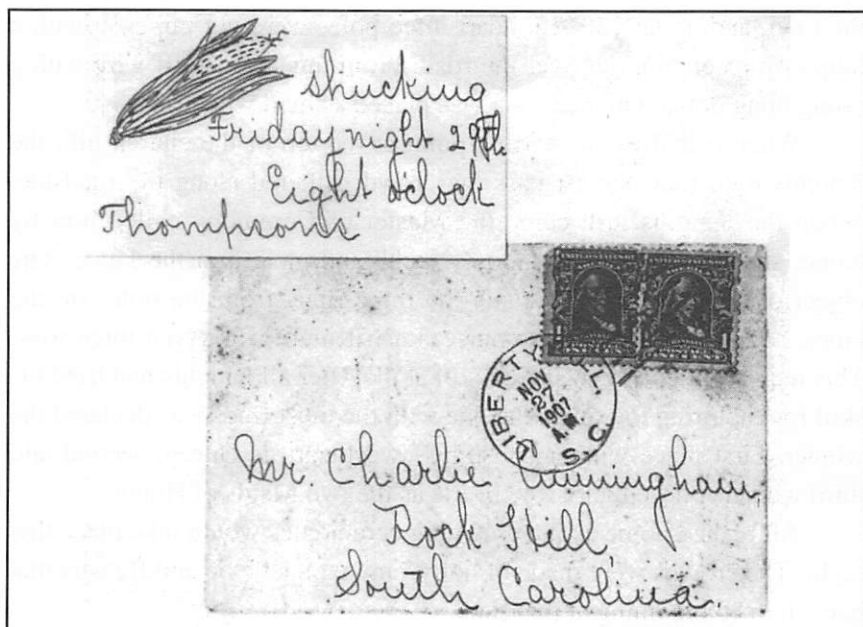 shucking
Friday night 29th.
Eight O'clock
Thompsons
LIBERTY HILL
NOV
27
1907
A.M.
S.C.
Mr. Charlie Cunningham
Rock Hill,
South Carolina.